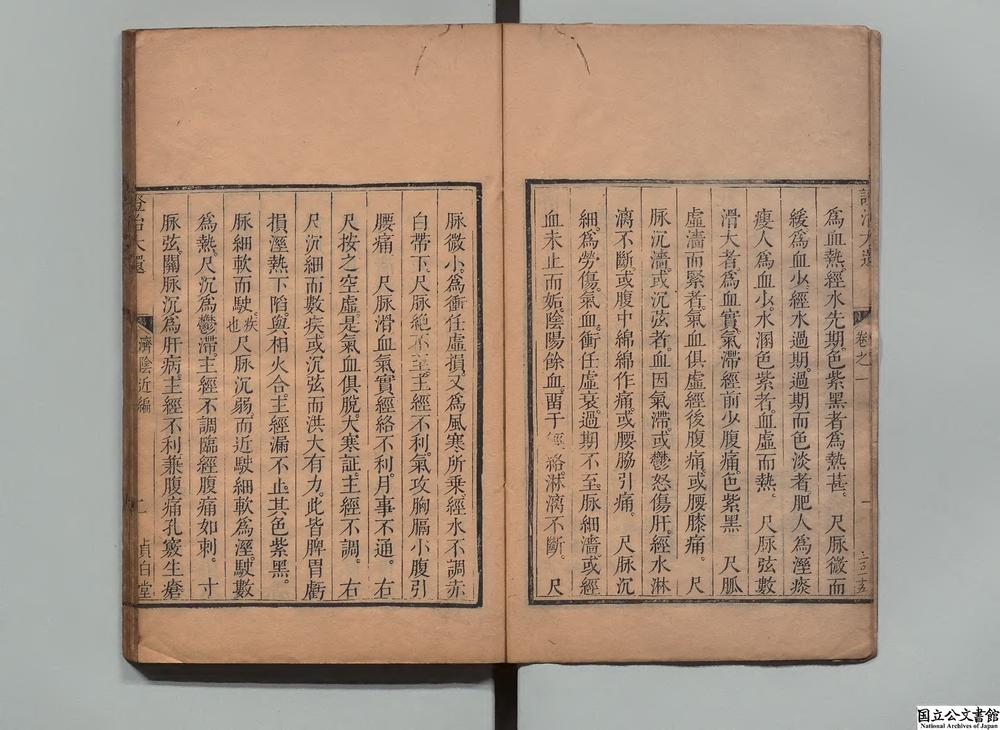 為血熱。經水先期。色紫黑者為熱甚。　尺脉微而
緩為血少。經水過期。過期而色淡者肥人為溼痰
瘦人為血少。水涸色紫者。血虛而熱。　尺脉弦數
滑大者。為血實氣滯。經前少腹痛。色紫黑　尺脉
虛濇而緊者。氣血俱虛。經後腹痛。或腰膝痛。　尺
脉沉濇。或沉弦者。血因氣滯。或鬱怒傷肝。經水淋
漓不斷。或腹中綿綿作痛。或腰脇引痛。　尺脉沉
細。為勞傷。氣血。衝任虛衰。過期不至。脉細濇。或經
血未止而妬。陰陽餘血。畱于經絡。淋漓不斷。　尺
證治大還
卷之一
脉微小。為衝任虛損。又為風寒所乘。經水不調。赤
白帶下。尺脉絶不至。主經不利。氣攻胸膈。小腹引
腰痛　尺脉滑。血氣實。經絡不利。月事不通。　右
尺按之空虛。是氣血俱脫。大寒証。主經不調。　右
尺沉細而數疾。或沉弦而洪大有力。此皆脾胃虧
損。溼熱下陷。與相火合。主經漏不止。其色紫黑。
脉細軟而駛。疾也　尺脉沉弱。而近駛。細軟為溼。駛數
為熱。尺沉為鬱滯。主經不調。臨經腹痛如刺。　寸
脉弦。關脉沉。為肝病。主經不利。兼腹痛。孔竅生瘡
證治大還
濟陰近編
二
貞白堂
国立公文書館
National Archives of Japan